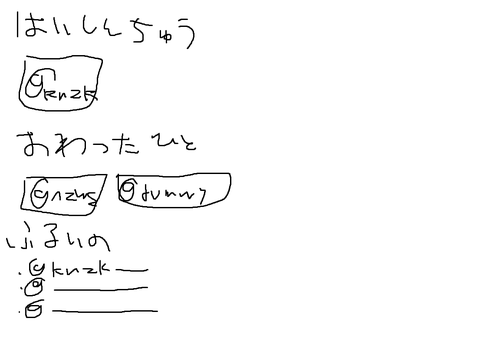 はいしんちゅう
@knzk
おわったひと
@nzws @dummy
ふるいの
・@knzk
・@
・@